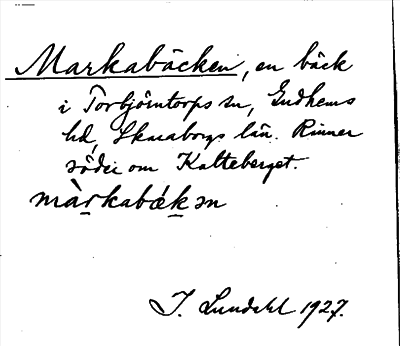 Markabäcken, en bäck
i Torbjörntorps sn, Gudhems
hd, Skaraborgs län. Rinner
söder om Kalteberget.
màrkabǽkən
I. Lundahl 1927.